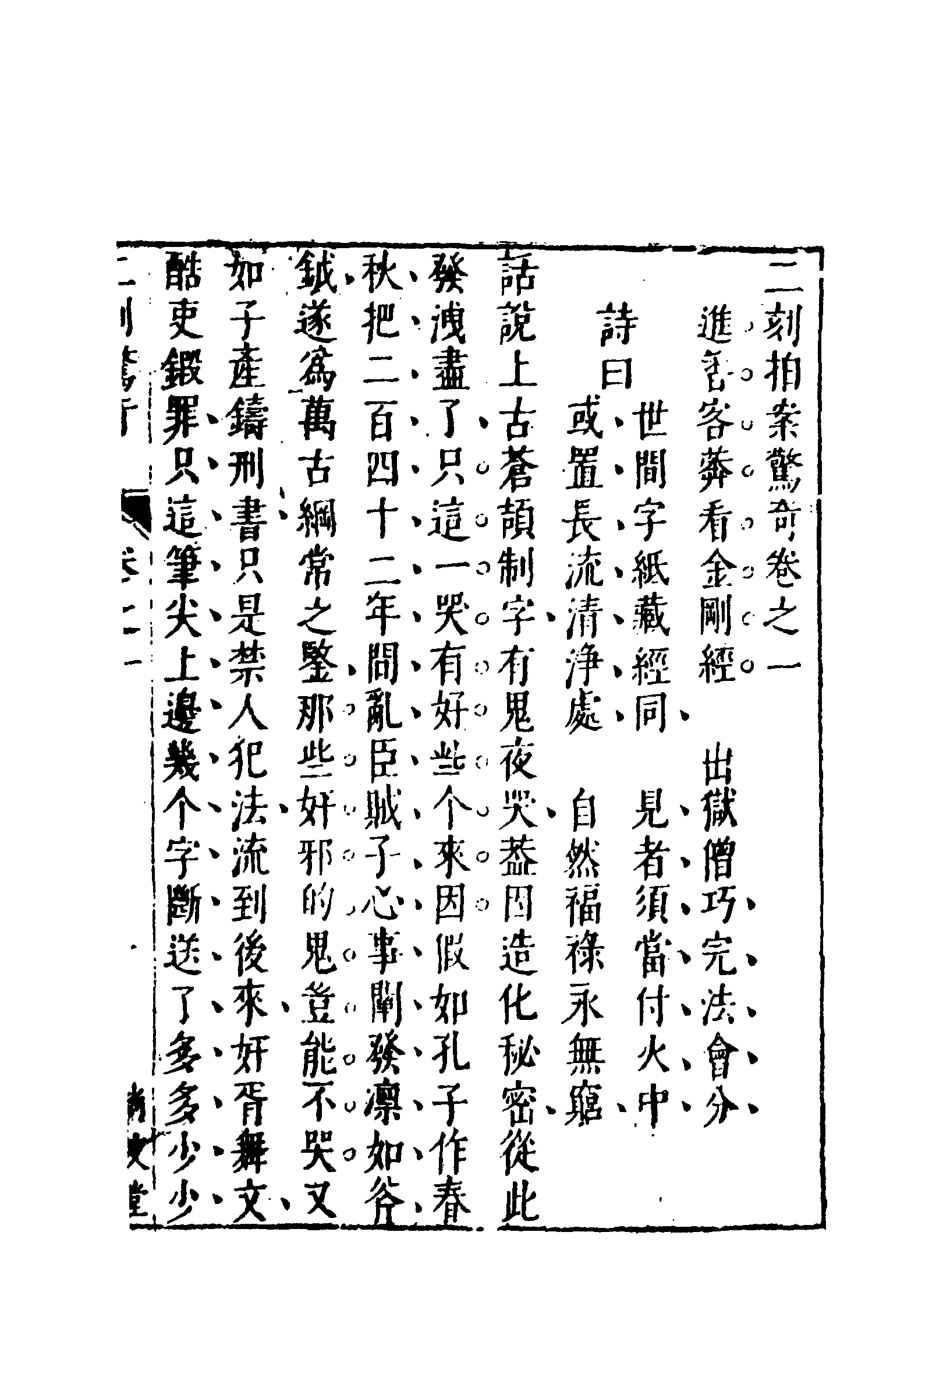 二刻拍案驚奇卷之一
進香客莽看金剛經　出獄僧巧完法會分
詩曰
世間字紙藏經同　見者須當付火中
或置長流清浄處　自然福祿永無窮
話說上古蒼頡制字有鬼夜哭葢因造化秘密從此
發洩盡了只這一哭有好些个來因假如孔子作春
秋把二百四十二年間亂臣賊子心事闡發凛如斧
鉞遂爲萬古綱常之鑒那些奸邪的鬼豈能不哭又
如子產鑄刑書只是禁人犯法流到後來奸胥舞文
酷吏鍜罪只這筆尖上邊幾个字斷送了多多少少
二刻驚奇　卷之一　尚友堂